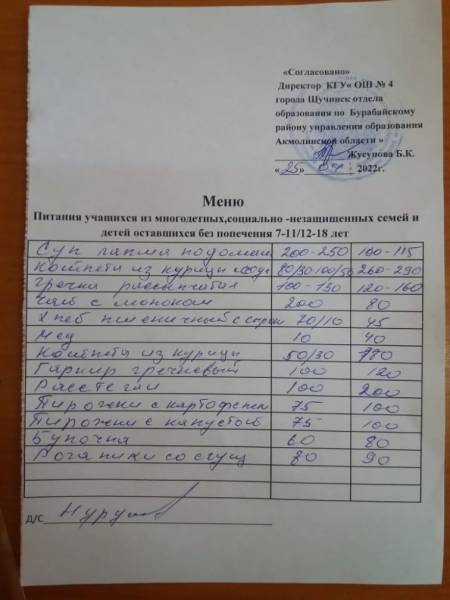 «Согласовано»
Директор КГУ« ОШ № 4
города Щучинск отдела
образования по Бурабайскому
району управления образования
Акмолинской области »
Жусупова Б.К.
«25» 04 2022г.
Меню
Питания учащихся из многодетных,социально -незащищенных семей и
детей оставшихся без попечения 7-11/12-18 лет
Суп лапша подомаш 200-250 100-115
Котлета из курицы 80/50 100/50 260-290
Гречка рассыпчатая 100-130 120-160
Чай с молоком 200 80
Хлеб пшеничный с сыром 70/10 45
Мед 10 40
Котлета из курицы 50/30 180
Гарнир гречневый 100 120
Расстегаи 100 200
Пирожки с картофелем 75 100
Пирожки с капустой 75 100
Булочка 60 80
Рогалики со сгущ 80 90
Д/С